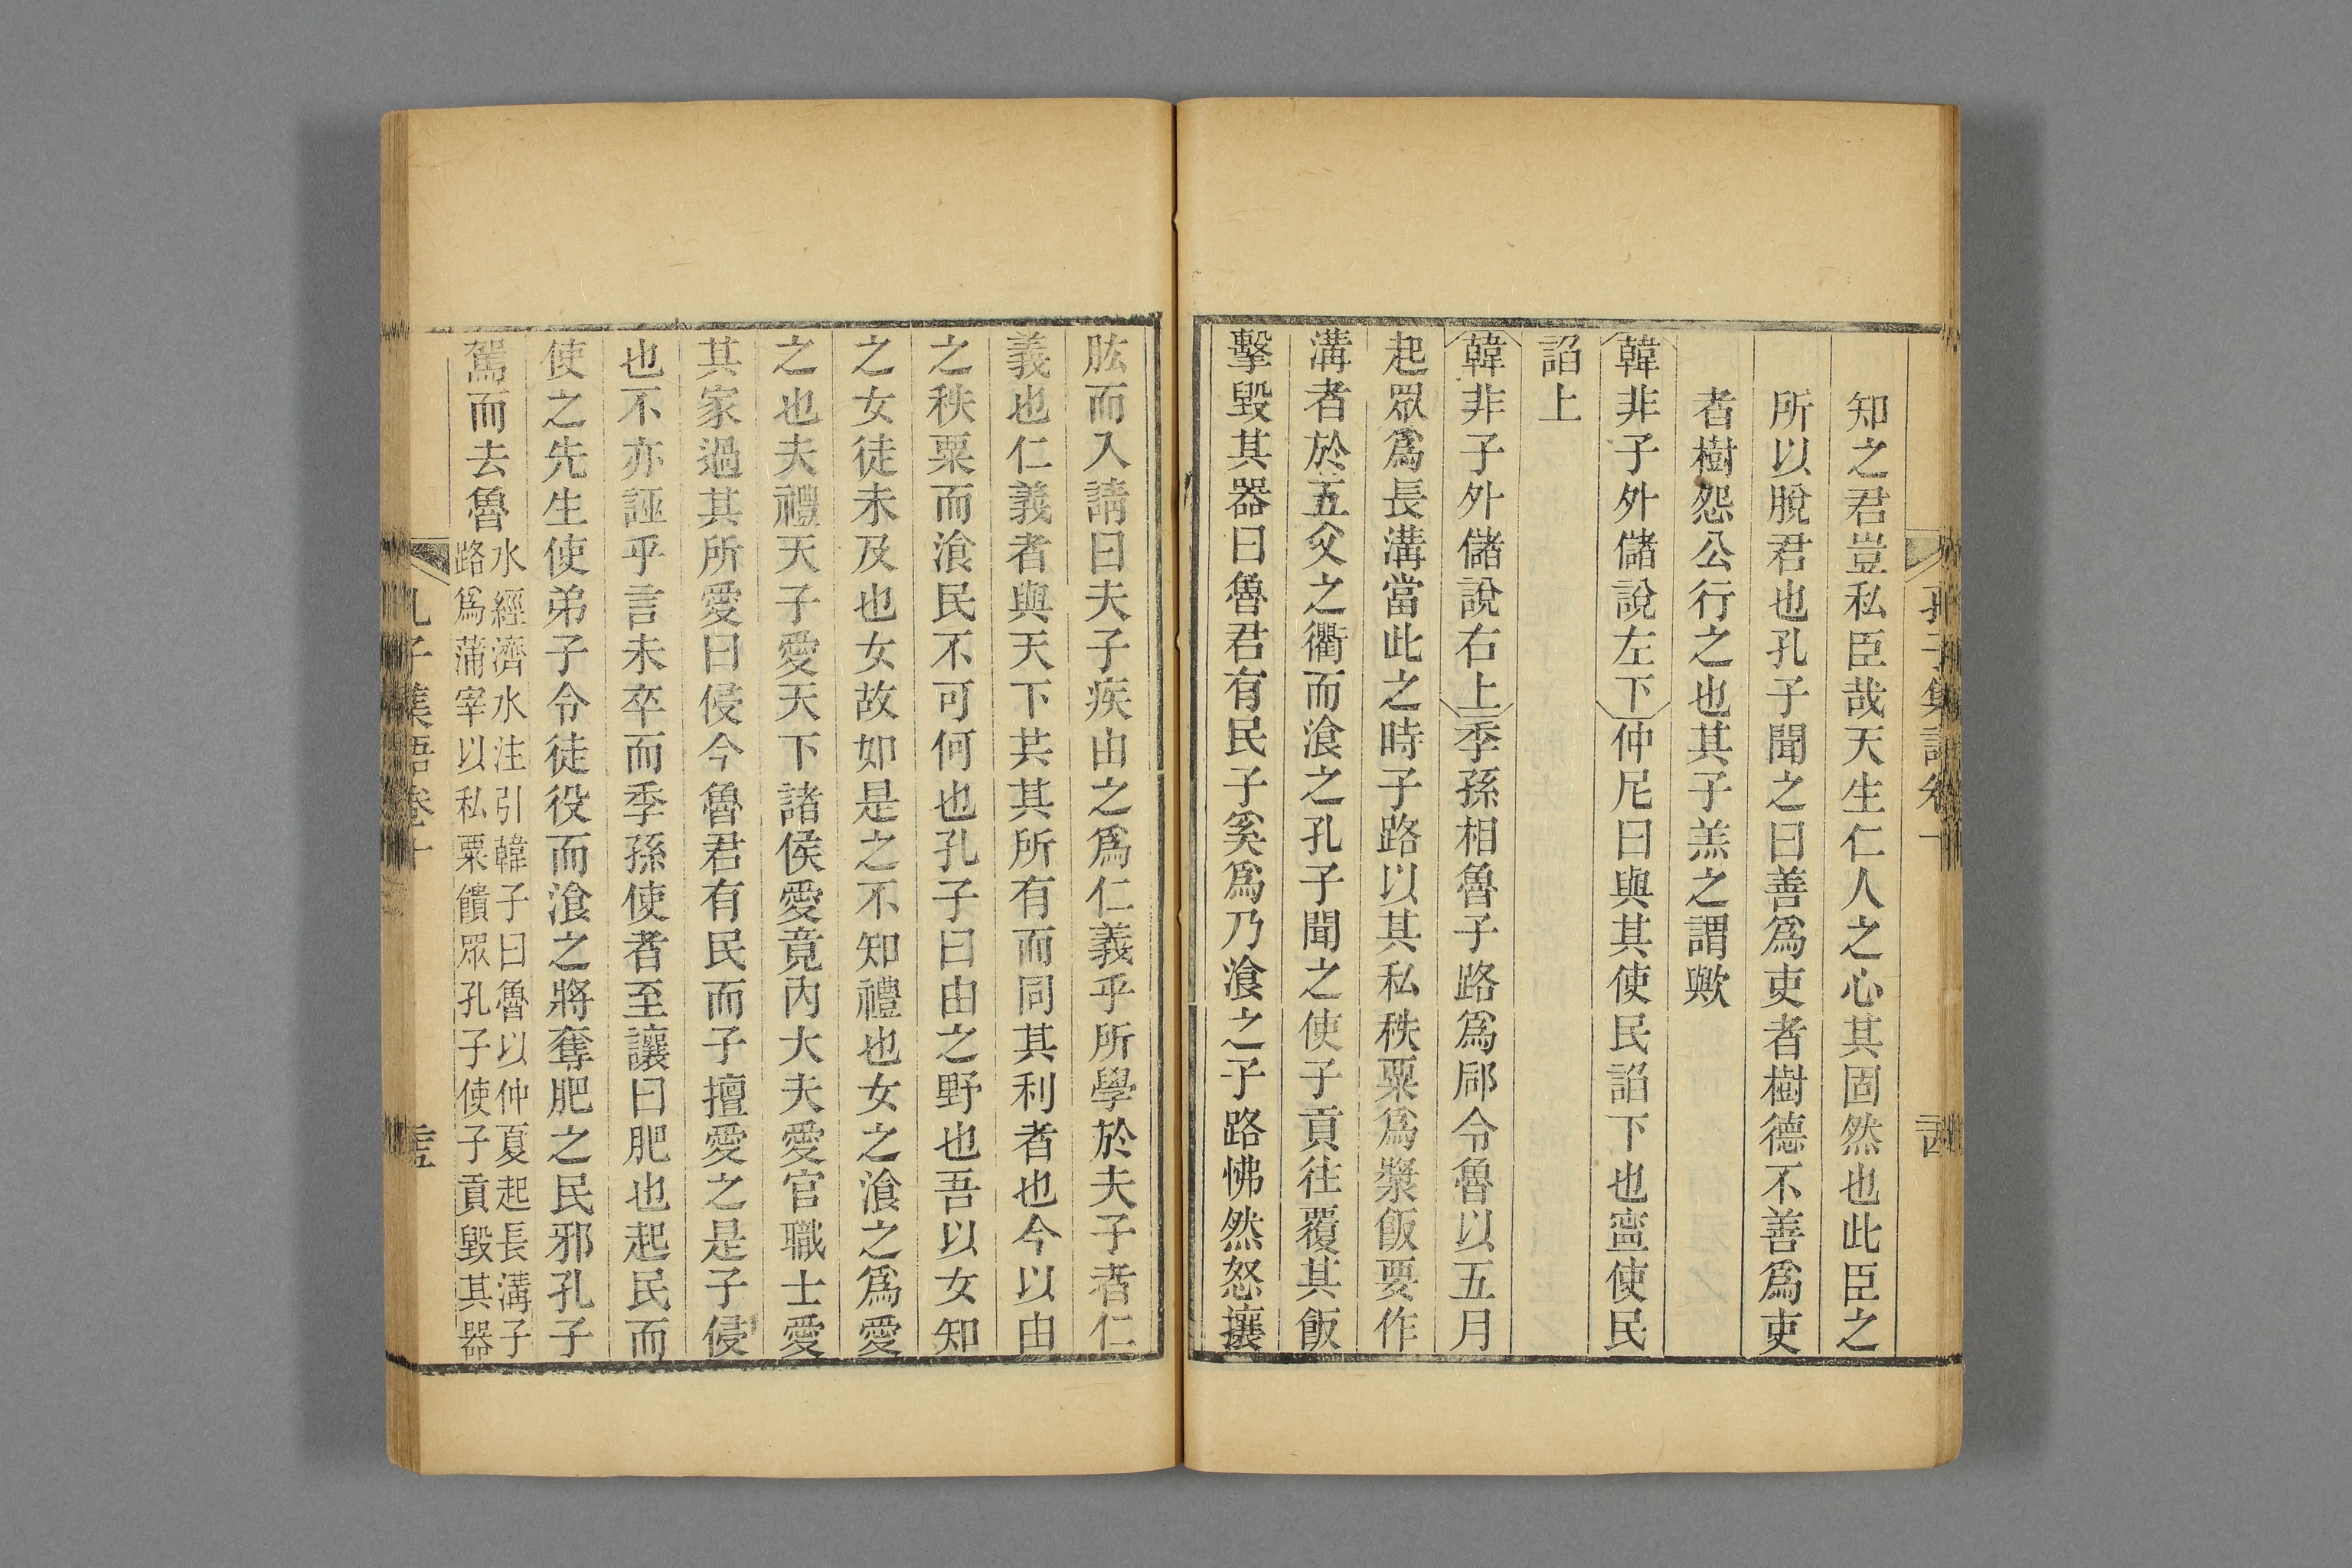 孔子集語卷十
知之君豈私臣哉天生仁人之心其固然也此臣之
所以脫君也孔子聞之曰善爲吏者樹德不善爲吏
者樹怨公行之也其子羔之謂歟
韓非子外儲說左下仲尼曰與其使民諂下也寍使民
諂上
韓非子外儲說右上季孫相魯子路爲郈令魯以五月
起眾爲長溝當此之時子路以其私秩粟爲漿飯要作
溝者於五父之衢而飡之孔子聞之使子貢往覆其飯
擊毀其器曰魯君有民子奚爲乃飡之子路怫然怒攘
肱而入請曰夫子疾由之爲仁義乎所學於夫子者仁
義也仁義者與天下共其所有而同其利者也今以由
之秩粟而飡民不可何也孔子曰由之野也吾以女知
之女徒未及也女故如是之不知禮也女之飡之爲愛
之也夫禮天子愛天下諸侯愛竟內大夫愛官職士愛
其家過其所愛曰侵今魯君有民而子擅愛之是子侵
也不亦誣乎言未卒而季孫使者至讓曰肥也起民而
使之先生使弟子令徒役而飡之將奪肥之民邪孔子
駕而去魯
水經濟水注引韓子曰魯以仲夏起長溝子
路爲蒲宰以私粟饋眾孔子使子貢毀其器
孔子集語卷十